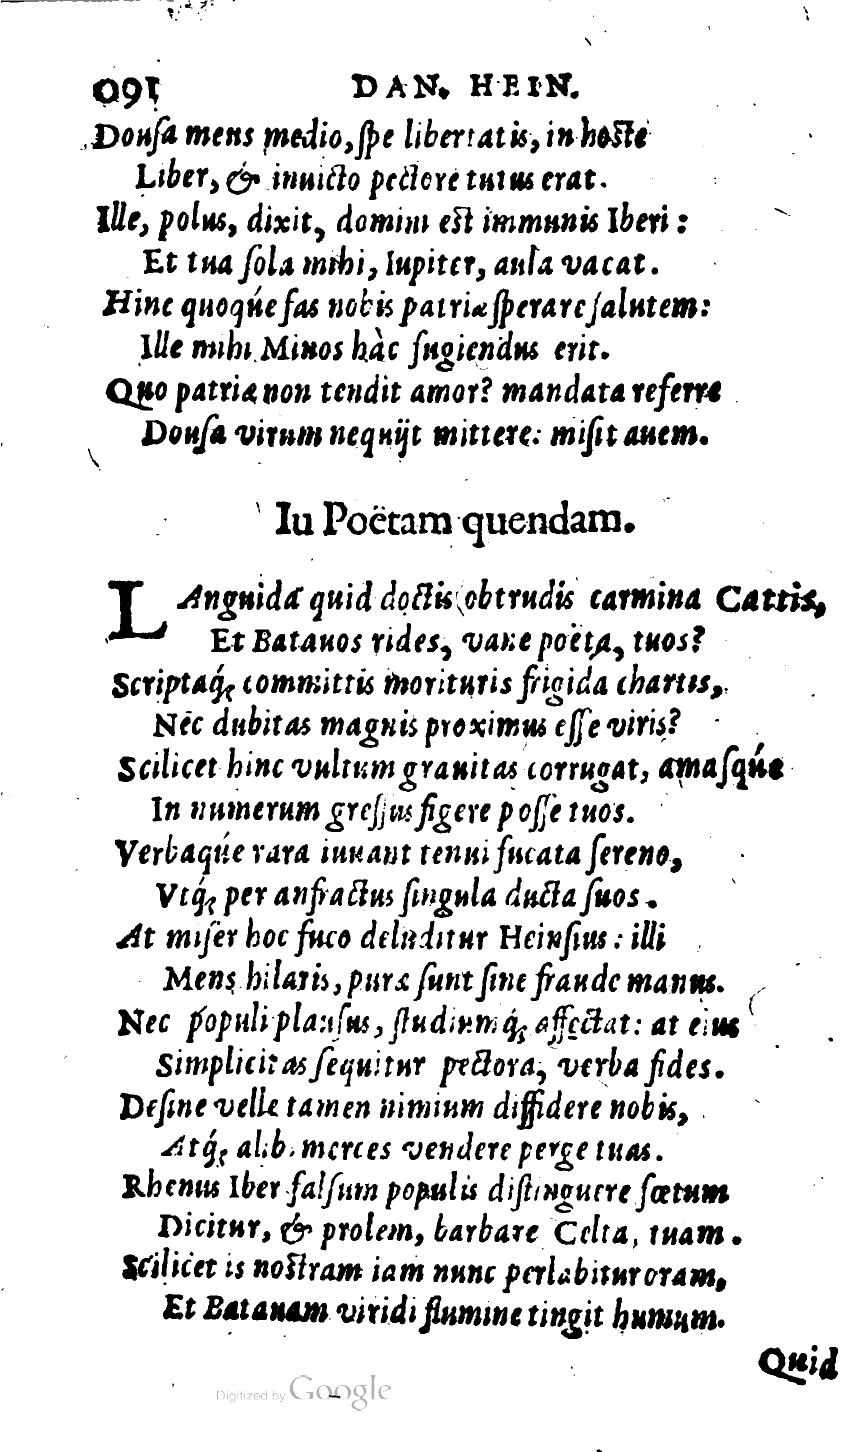 091 DAN. HEIN.
Douſa mens medio, ſpe libertatis, in hoſte
Liber, & inuicto pectore tutus erat.
Ille, polus, dixit, domini eſt immunis Iberi:
Et tua ſola mihi, Iupiter, aula vacat.
Hinc quoq́ue fas nobis patriæ ſperare ſalutem:
Ille mihi Minos hàc fugiendus erit.
Quo patriæ non tendit amor? mandata referre
Douſa virum nequijt mittere: miſit auem.
Iu Poëtam quendam.
LAnguida quid doctis obtrudis carmina Cattis,
Et Batauos rides, vane poëta, tuos?
Scriptaq́; committis morituris frigida chartis,
Nec dubitas magnis proximus eſſe viris?
Scilicet hinc vultum grauitas corrugat, amaſq́ue
In numerum greſſus figere poſſe tuos.
Verbaq́ue rara iuuant tenui fucata ſereno,
Vtq́; per anfractus ſingula ducta ſuos.
At miſer hoc fuco deluditur Heinſius: illi
Mens hilaris, puræ ſunt ſine fraude manus.
Nec populi plauſus, ſtudiumq́; affectat: at eius
Simplicitas ſequitur pectora, verba fides.
Deſine velle tamen nimium diffidere nobis,
Atq́; alib. merces vendere perge tuas.
Rhenus Iber falſum populis diſtinguere fœtum
Dicitur, & prolem, barbare Celta, tuam.
Scilicet is noſtram iam nunc perlabitur oram,
Et Batauam viridi flumine tingit humum.
Quid
Digitized by Google